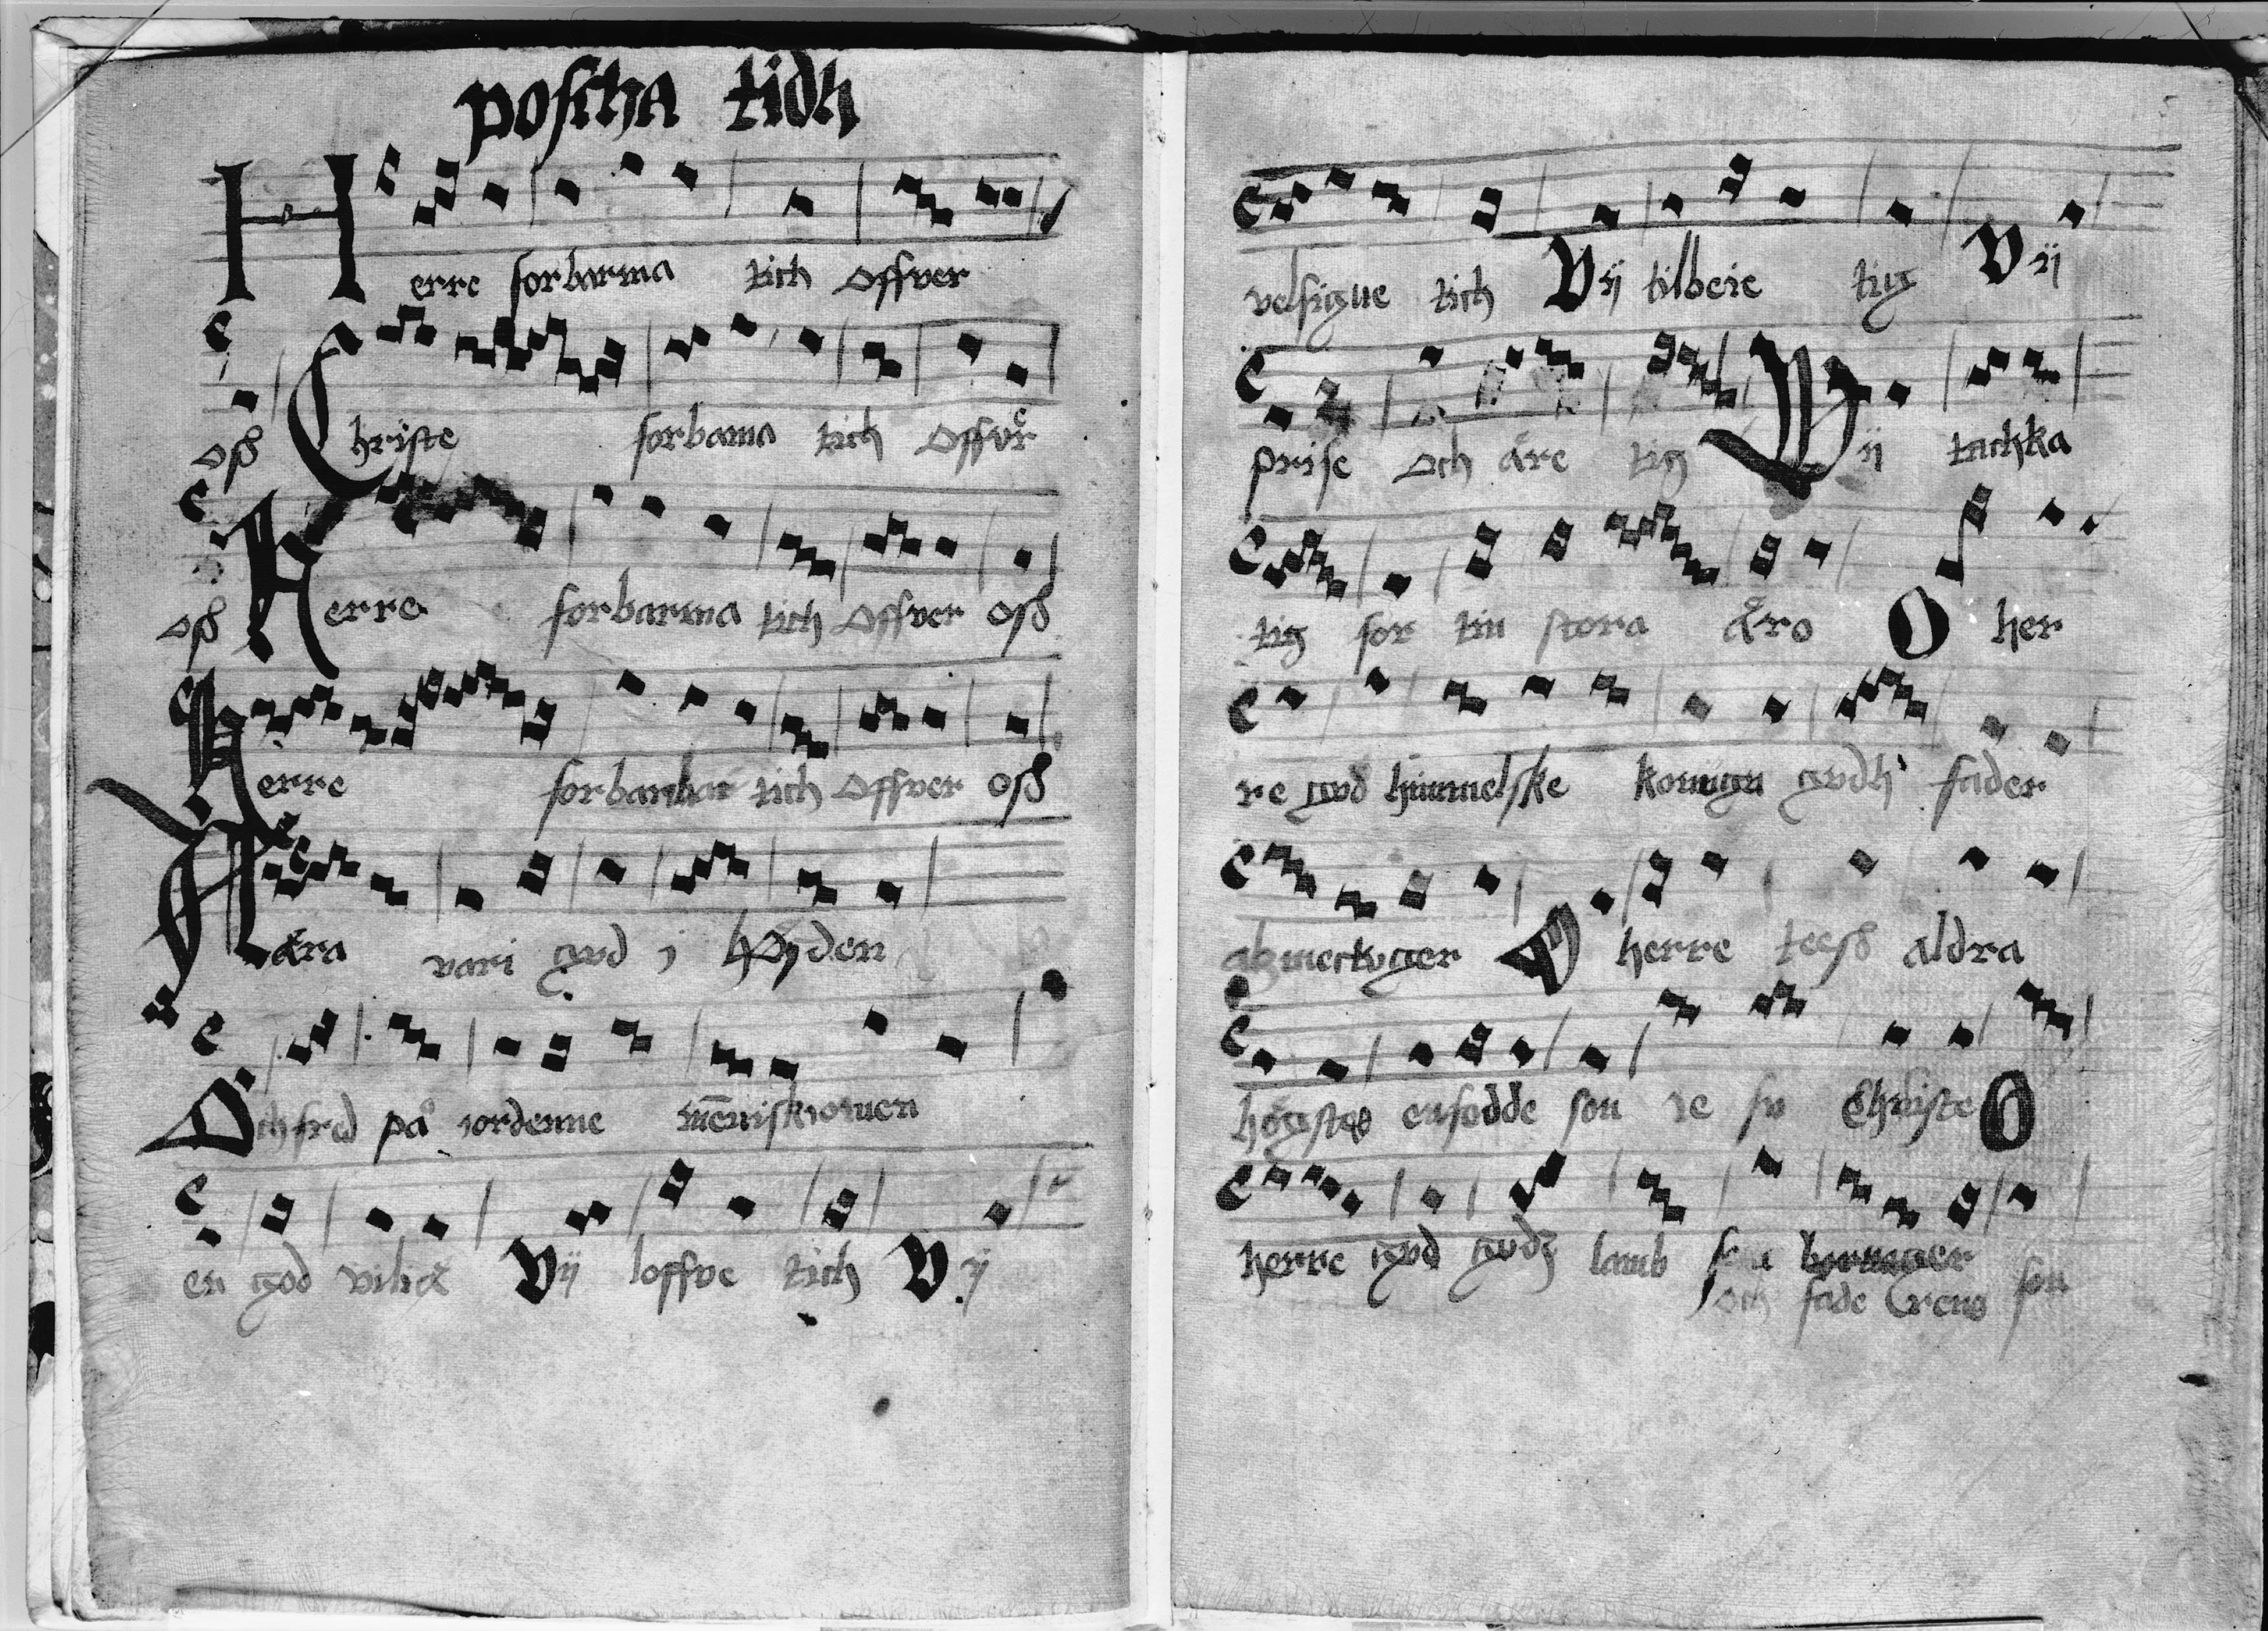 poscha tidh
Herre forbarma tich offver
oss Christe forbama tich offver
oss Herre forbarma tich offver oss
Herre forbarbar tich offver oss
Aära vari gvd i höyden
Och fred på iordenne menniskiomen
en god vilie Vij loffve tich Vij
velsigne tich Vij tilbeie tig Vij
prise och äre tig Vij tachka
tig for tin stora äro O her
re gvd himmelske konugn gvdh fader
alzmectvger O herre teess aldra
högestes enfodde son ie sv Christe O
herre gvd gvdz lamb
och fade rens son